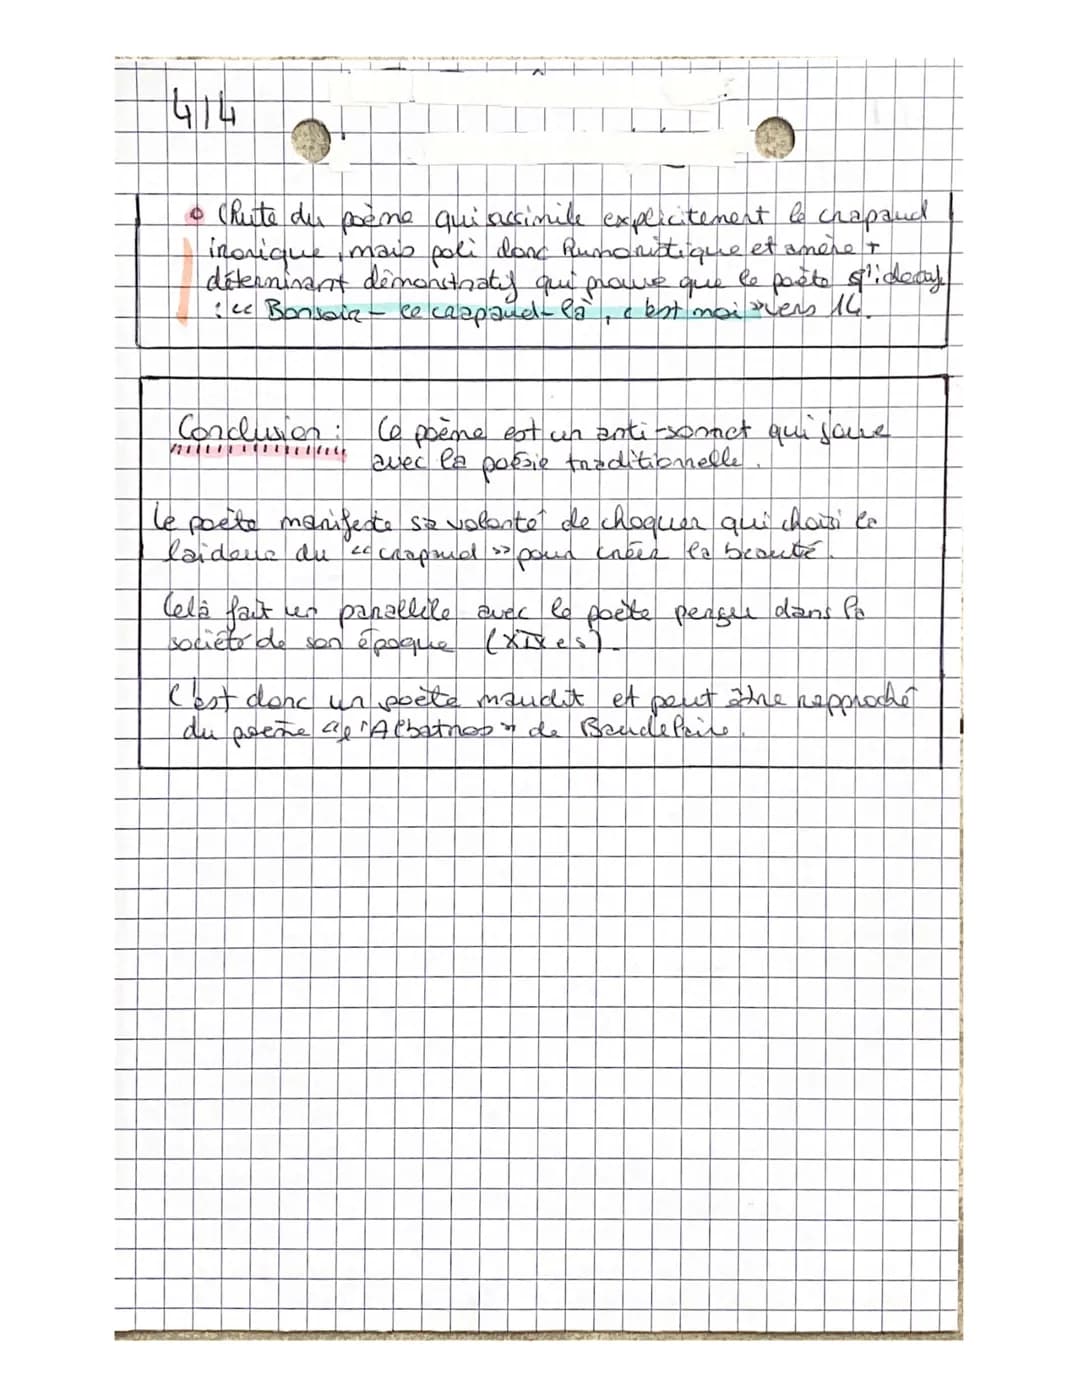 4/4
Chute du poème qui assimile explicitement le crapaud
ironique, mais poli donc humoristique et amère +
déterminant démonstratif qui prouve que le poète
: << Bonsoir - ce crapaud-là, c'est moi >> vers 14.
Conclusion : Ce poème est un anti-sonnet qui joue
avec la poésie traditionnelle.
Le poète manifeste sa volonté de choquer qui choisi la
laideur du << crapaud >> pour créer la beauté.
Celà fait un parallèle avec le poète perçu dans la
société de son époque (XIXe s).
C'est donc un poète maudit et peut être rapproché
du poème << l'Albatros >> de Baudelaire.